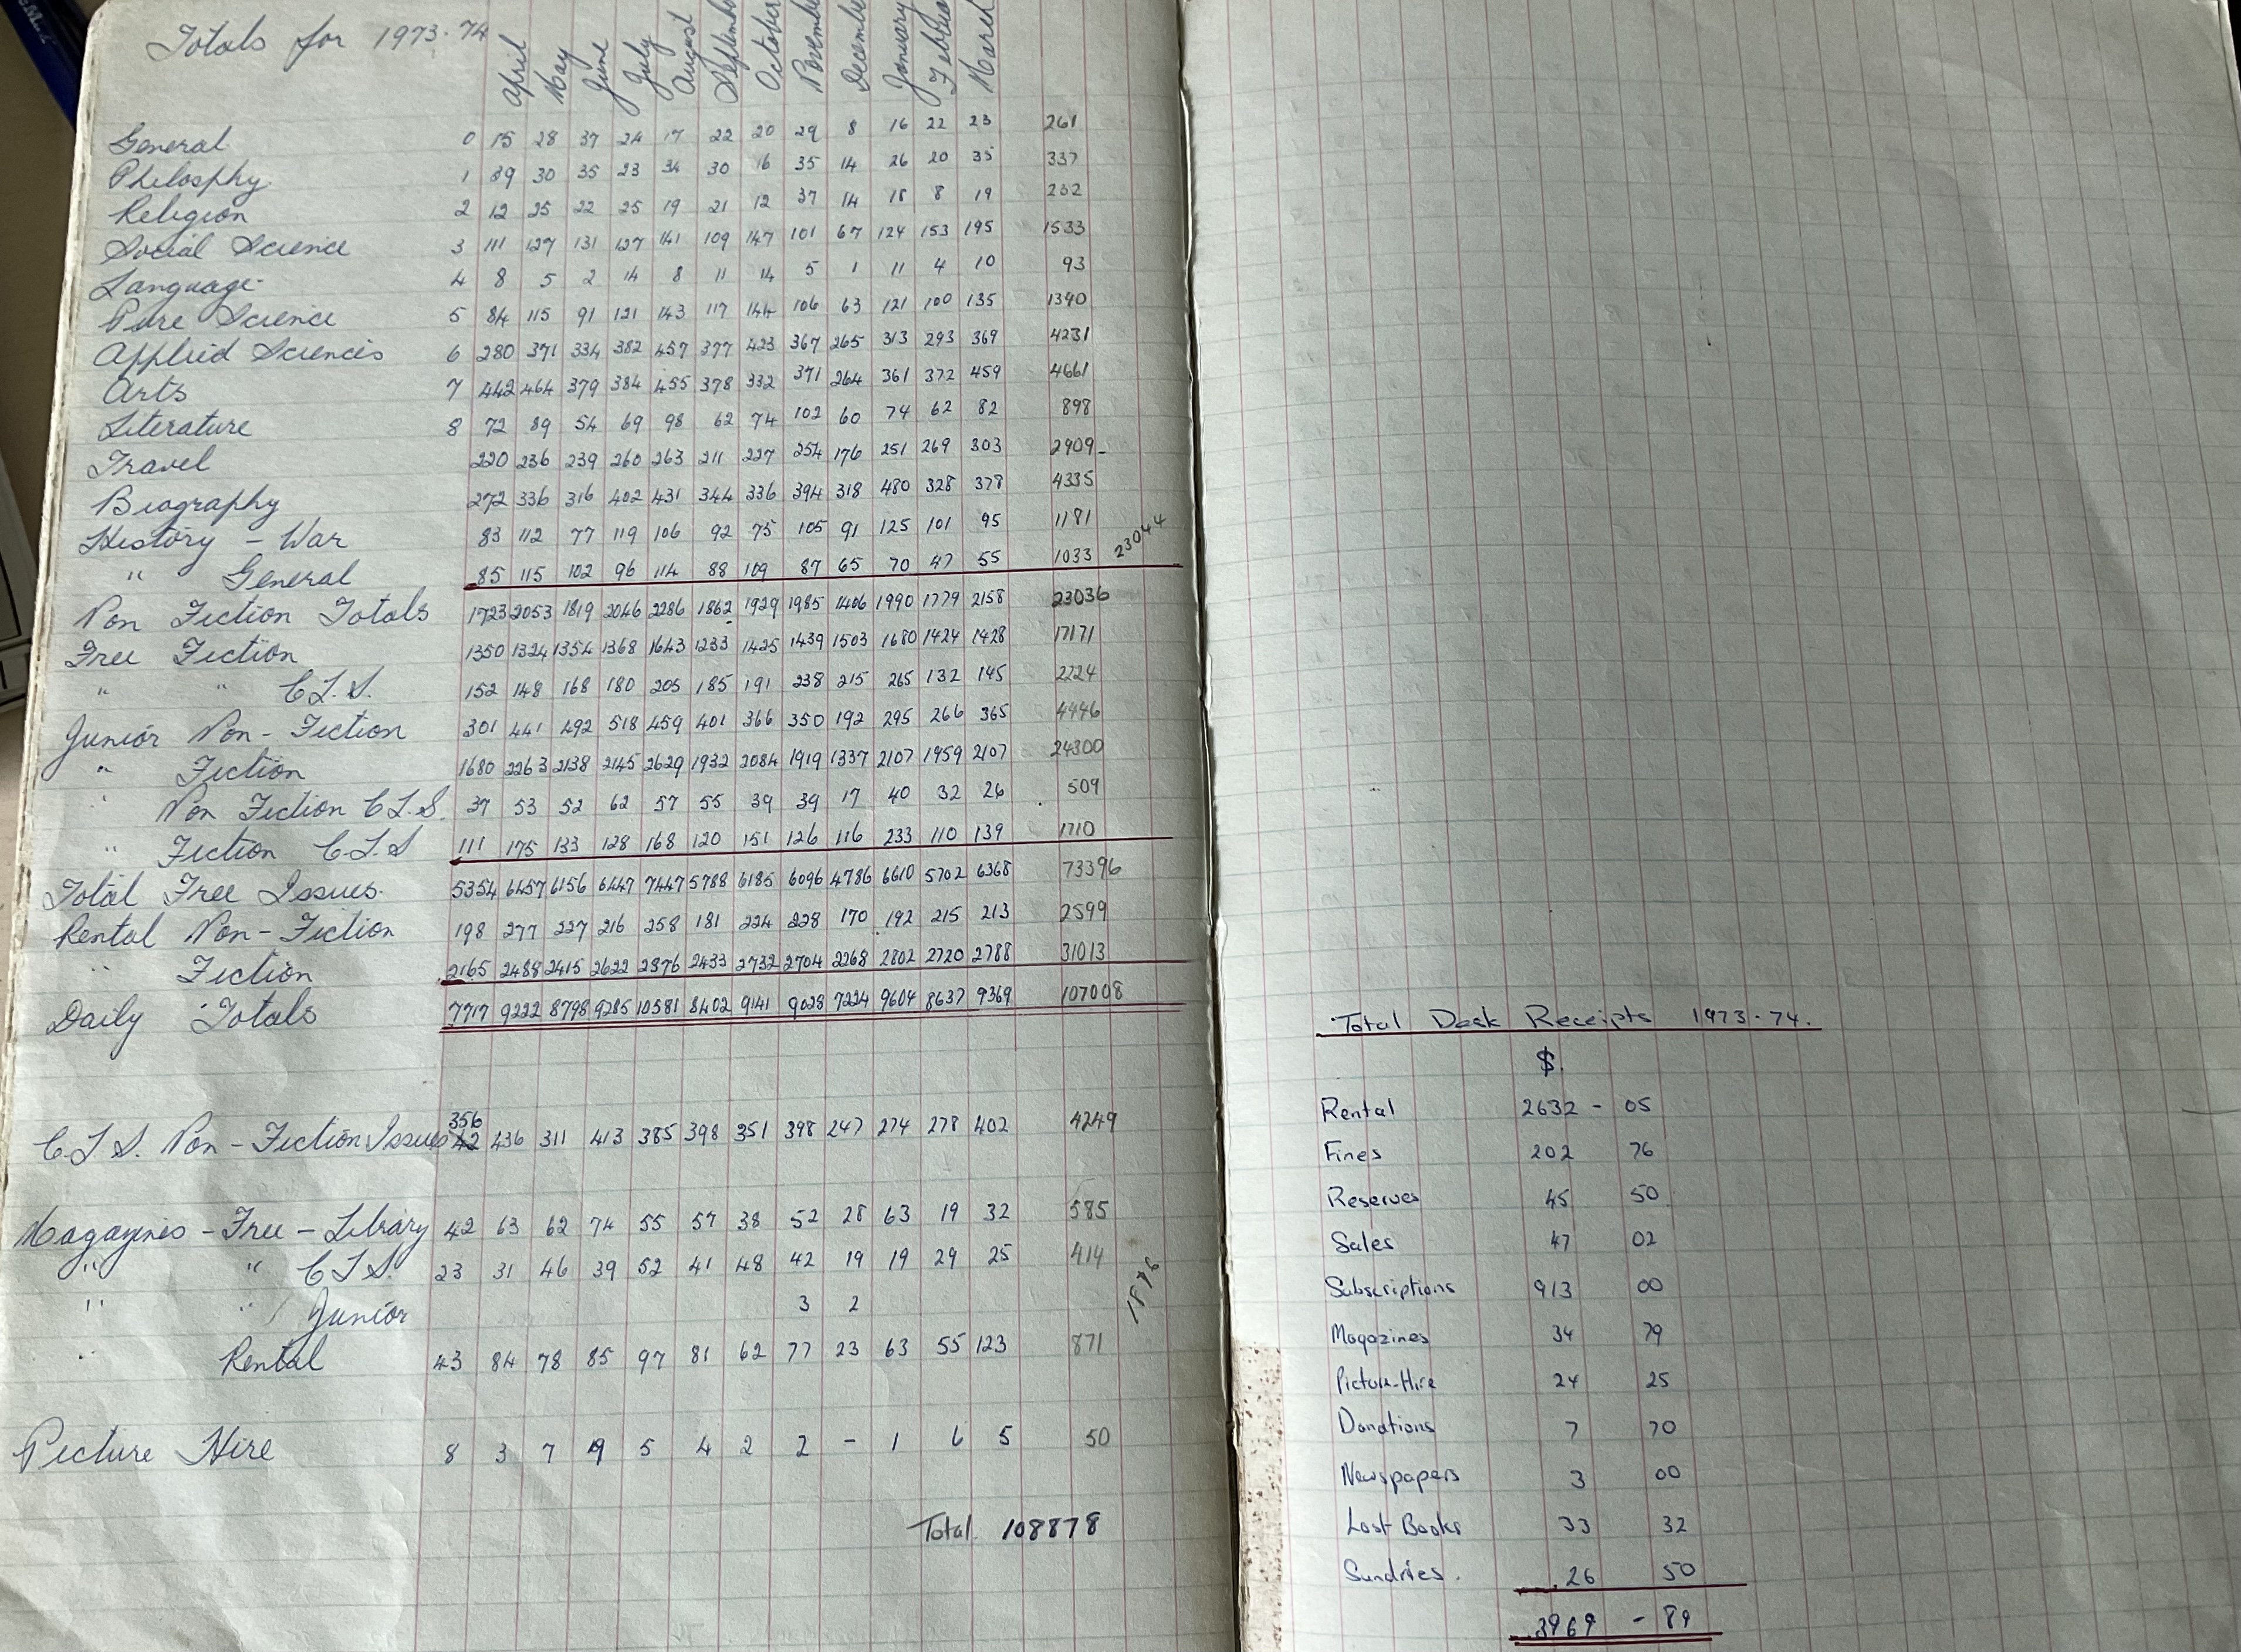 Totals for 1973-74
April May June July August September October November December January February March
General 0 15 28 37 24 17 22 20 29 8 16 22 23 261
Philosphy 1 39 30 35 23 34 30 16 35 14 26 20 35 337
Religion 2 12 25 22 25 19 21 12 37 14 18 8 19 232
Social Science 3 111 127 131 127 141 109 147 101 67 124 153 195 1533
Language 4 8 5 2 14 8 11 14 5 1 11 4 10 93
Pure Science 5 84 115 91 121 143 117 144 106 63 121 100 135 1340
Applied Sciences 6 280 371 334 382 457 377 423 367 265 313 293 369 4231
Arts 7 442 464 379 384 455 378 332 371 264 361 372 459 4661
Literature 8 72 89 54 69 98 62 74 102 60 74 62 82 898
Travel 220 236 239 260 263 211 227 254 176 251 269 303 2909
Biography 272 336 316 402 431 344 336 394 318 480 328 378 4335
History - War 83 112 77 119 106 92 75 105 91 125 101 95 1181
" General 85 115 102 96 114 88 109 87 65 70 47 55 1033 23044
Non Fiction Totals 1723 2053 1819 2046 2286 1862 1929 1985 1406 1990 1779 2158 23036
Free Fiction 1350 1324 1354 1368 1643 1233 1425 1439 1503 1680 1424 1428 17171
" " C.L.S. 152 148 168 180 205 185 191 238 215 265 132 145 2224
Junior Non-Fiction 301 441 492 518 459 401 366 350 192 295 266 365 4446
" Fiction 1680 2263 2138 2145 2629 1932 2084 1919 1337 2107 1959 2107 24300
" Non Fiction C.L.S. 37 53 52 62 57 55 39 39 17 40 32 26 509
" Fiction C.L.S 111 175 133 128 168 120 151 126 116 233 110 139 1710
Total Free Issues. 5354 6457 6156 6447 7447 5788 6185 6096 4786 6610 5702 6368 73396
Rental Non-Fiction 198 277 227 216 258 181 224 228 170 192 215 213 2599
" Fiction 2165 2488 2415 2622 2876 2433 2732 2704 2268 2802 2720 2788 31013
Daily Totals 7717 9222 8798 9285 10581 8402 9141 9028 7224 9604 8637 9369 107008
356
C.L.S. Non-Fiction Issues 42 436 311 413 385 398 351 398 247 274 278 402 4249
Magazines - Free - Library 42 63 62 74 55 57 38 52 28 63 19 32 585
" " C.L.S. 23 31 46 39 52 41 48 42 19 19 29 25 414
" " Junior 3 2
" Rental 43 84 78 85 97 81 62 77 23 63 55 123 871
Picture Hire 8 3 7 9 5 4 2 2 - 1 6 5 50
Total 108878
Total Desk Receipts 1973-74.
$.
Rental 2632 - 05
Fines 202 76
Reserves 45 50
Sales 47 02
Subscriptions 913 00
Magazines 34 79
Picture-Hire 24 25
Donations 7 70
Newspapers 3 00
Lost Books 33 32
Sundries. 26 50
3969 - 89